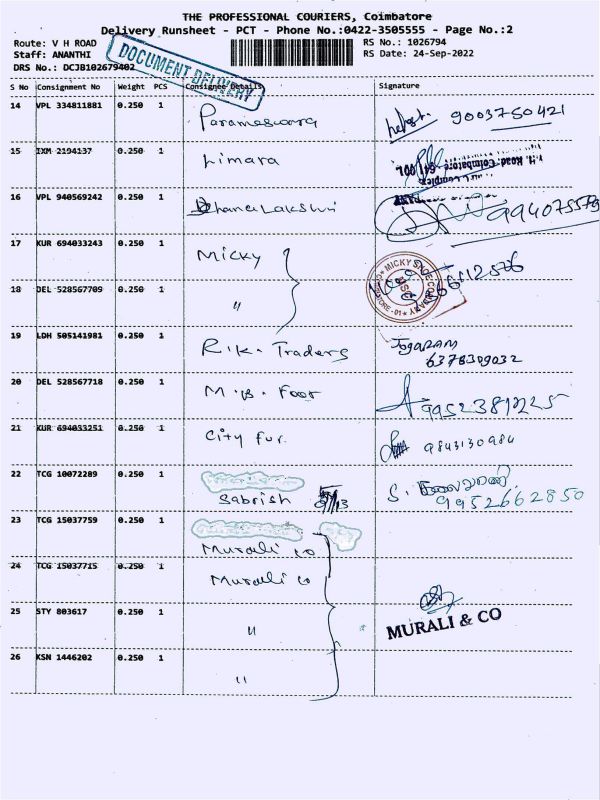 THE PROFESSIONAL COURIERS, Coimbatore
Delivery Runsheet - PCT - Phone No.:0422-3505555 - Page No.:2
Route: V H ROAD
Staff: ANANTHI
DRS No.: DCJB102679402
DOCUMENT DELIVERY
RS No.: 1026794
RS Date: 24-Sep-2022
S No Consignment No Weight PCS Consignee Details Signature
14 VPL 334811881 0.250 1 Parameswara 9003750421
15 IXM 2194137 0.250 1 Limara
V.H. Road, Coimbatore - 641 001.
16 VPL 940569242 0.250 1 Dhanalakshmi
17 KUR 694033243 0.250 1 Micky
MICKY SHOE COMPANY
18 DEL 528567709 0.250 1 "
19 LDH 505141981 0.250 1 R.K. Traders Jogaram
6378309032
20 DEL 528567718 0.250 1 M.B. Foot
21 KUR 694033251 0.250 1 City fur. 9843130984
22 TCG 10072289 0.250 1
Sabrish S.
9952662850
23 TCG 15037759 0.250 1
Murali co
24 TCG 15037715 0.250 1 Murali co
25 STY 803617 0.250 1 " MURALI & CO
26 KSN 1446202 0.250 1 "